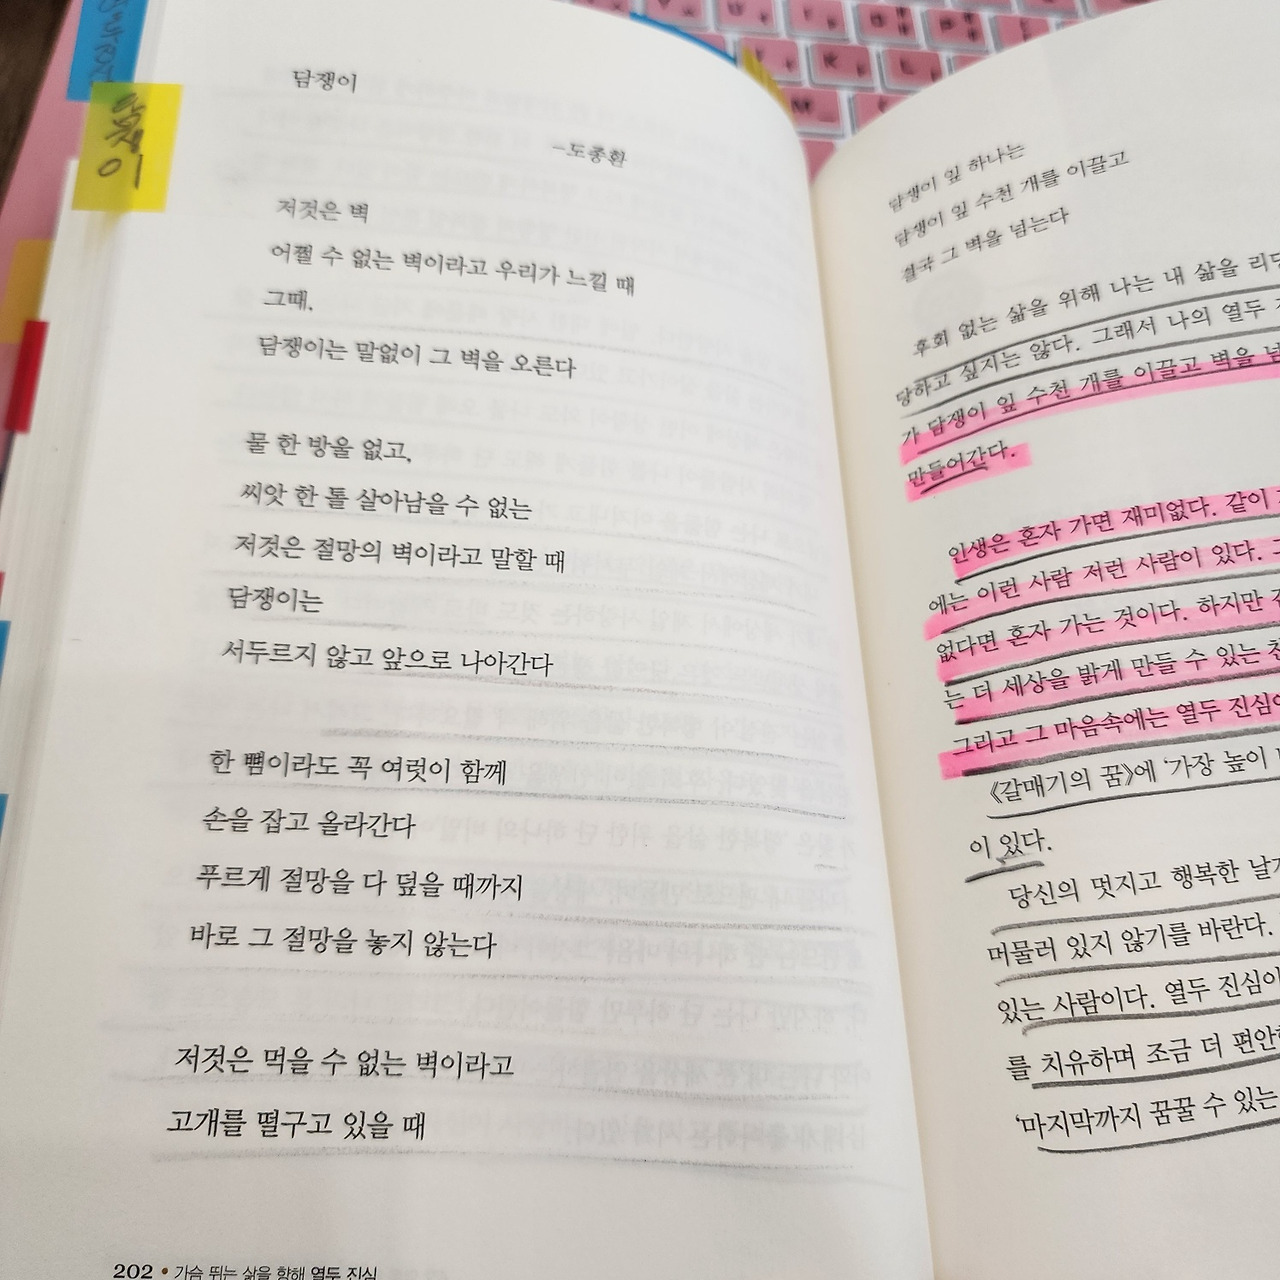 담쟁이
담쟁이
-도종환
저것은 벽
어쩔 수 없는 벽이라고 우리가 느낄 때
그때,
담쟁이는 말없이 그 벽을 오른다
물 한 방울 없고,
씨앗 한 톨 살아남을 수 없는
저것은 절망의 벽이라고 말할 때
담쟁이는
서두르지 않고 앞으로 나아간다
한 뼘이라도 꼭 여럿이 함께
손을 잡고 올라간다
푸르게 절망을 다 덮을 때까지
바로 그 절망을 놓지 않는다
저것은 먹을 수 없는 벽이라고
고개를 떨구고 있을 때
202 • 가슴 뛰는 삶을 향해 열두 진심
담쟁이 잎 하나는
담쟁이 잎 수천 개를 이끌고
결국 그 벽을 넘는다
후회 없는 삶을 위해 나는 내 삶을 리드
당하고 싶지는 않다. 그래서 나의 열두
가 담쟁이 잎 수천 개를 이끌고 벽을 넘
만들어간다.
인생은 혼자 가면 재미없다. 같이
에는 이런 사람 저런 사람이 있다.
없다면 혼자 가는 것이다. 하지만
는 더 세상을 밝게 만들 수 있는
그리고 그 마음속에는 열두 진심이
《갈매기의 꿈》에 ‘가장 높이
이 있다.
당신의 멋지고 행복한 날개
머물러 있지 않기를 바란다.
있는 사람이다. 열두 진심이
를 치유하며 조금 더 편안
‘마지막까지 꿈꿀 수 있는